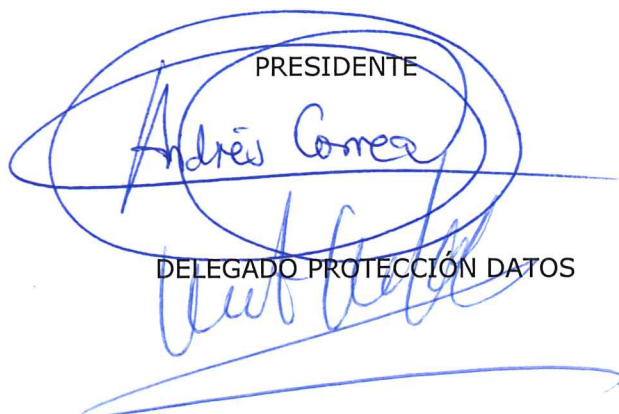 PRESIDENTE
Andrés Correa
DELEGADO PROTECCIÓN DATOS